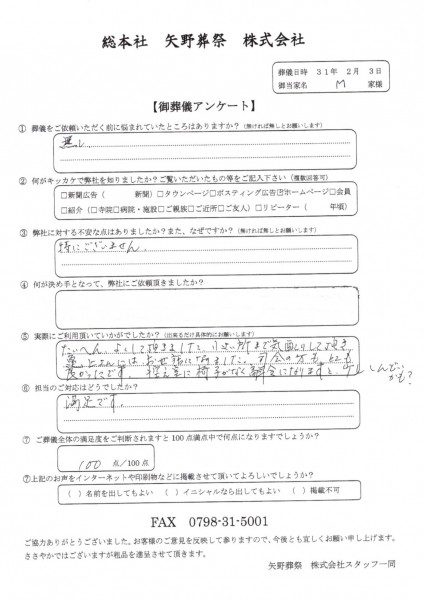 総本社　矢野葬祭　株式会社
葬儀日時　３１年　２月　３日
御当家名　M　家様
【御葬儀アンケート】
① 葬儀をご依頼いただく前に悩まれていたところはありますか？（無ければ無しとお願いします）
無し
② 何がキッカケで弊社を知りましたか？ご覧いただいたもの等をご記入下さい（複数回答可）
□新聞広告（　　　新聞）□タウンページ□ポスティング広告☑ホームページ□会員
□紹介（□寺院□病院・施設□ご親族□ご近所□ご友人）□リピーター（　　年頃）
③ 弊社に対する不安な点はありますか？また、なぜですか？（無ければ無しとお願いします）
特にございません。
④ 何が決め手となって、弊社にご依頼頂きましたか？
⑤ 実際にご利用頂いていかがでしたか？（出来るだけ具体的にお願いします）
たいへん よくして頂きました。
さんには お世話になりました。司会の方も とても
良かったです。控え室に椅子がなく
しんどいかも？
⑥ 担当のご対応はどうでしたか？
満足です。
⑦ ご葬儀全体の満足度をご判断されますと 100 点満点中で何点になりますでしょうか？
100 点／100 点
⑦上記のお声をインターネットや印刷物などに掲載させて頂いてよろしいでしょうか？
（　）名前を出してもよい　（　）イニシャルなら出してもよい　（　）掲載不可
FAX　0798-31-5001
ご協力ありがとうございました。お客様のご意見を反映して参りますので、今後とも宜しくお願い申し上げます。
ささやかではございますが粗品を進呈させて頂きます。
矢野葬祭　株式会社スタッフ一同